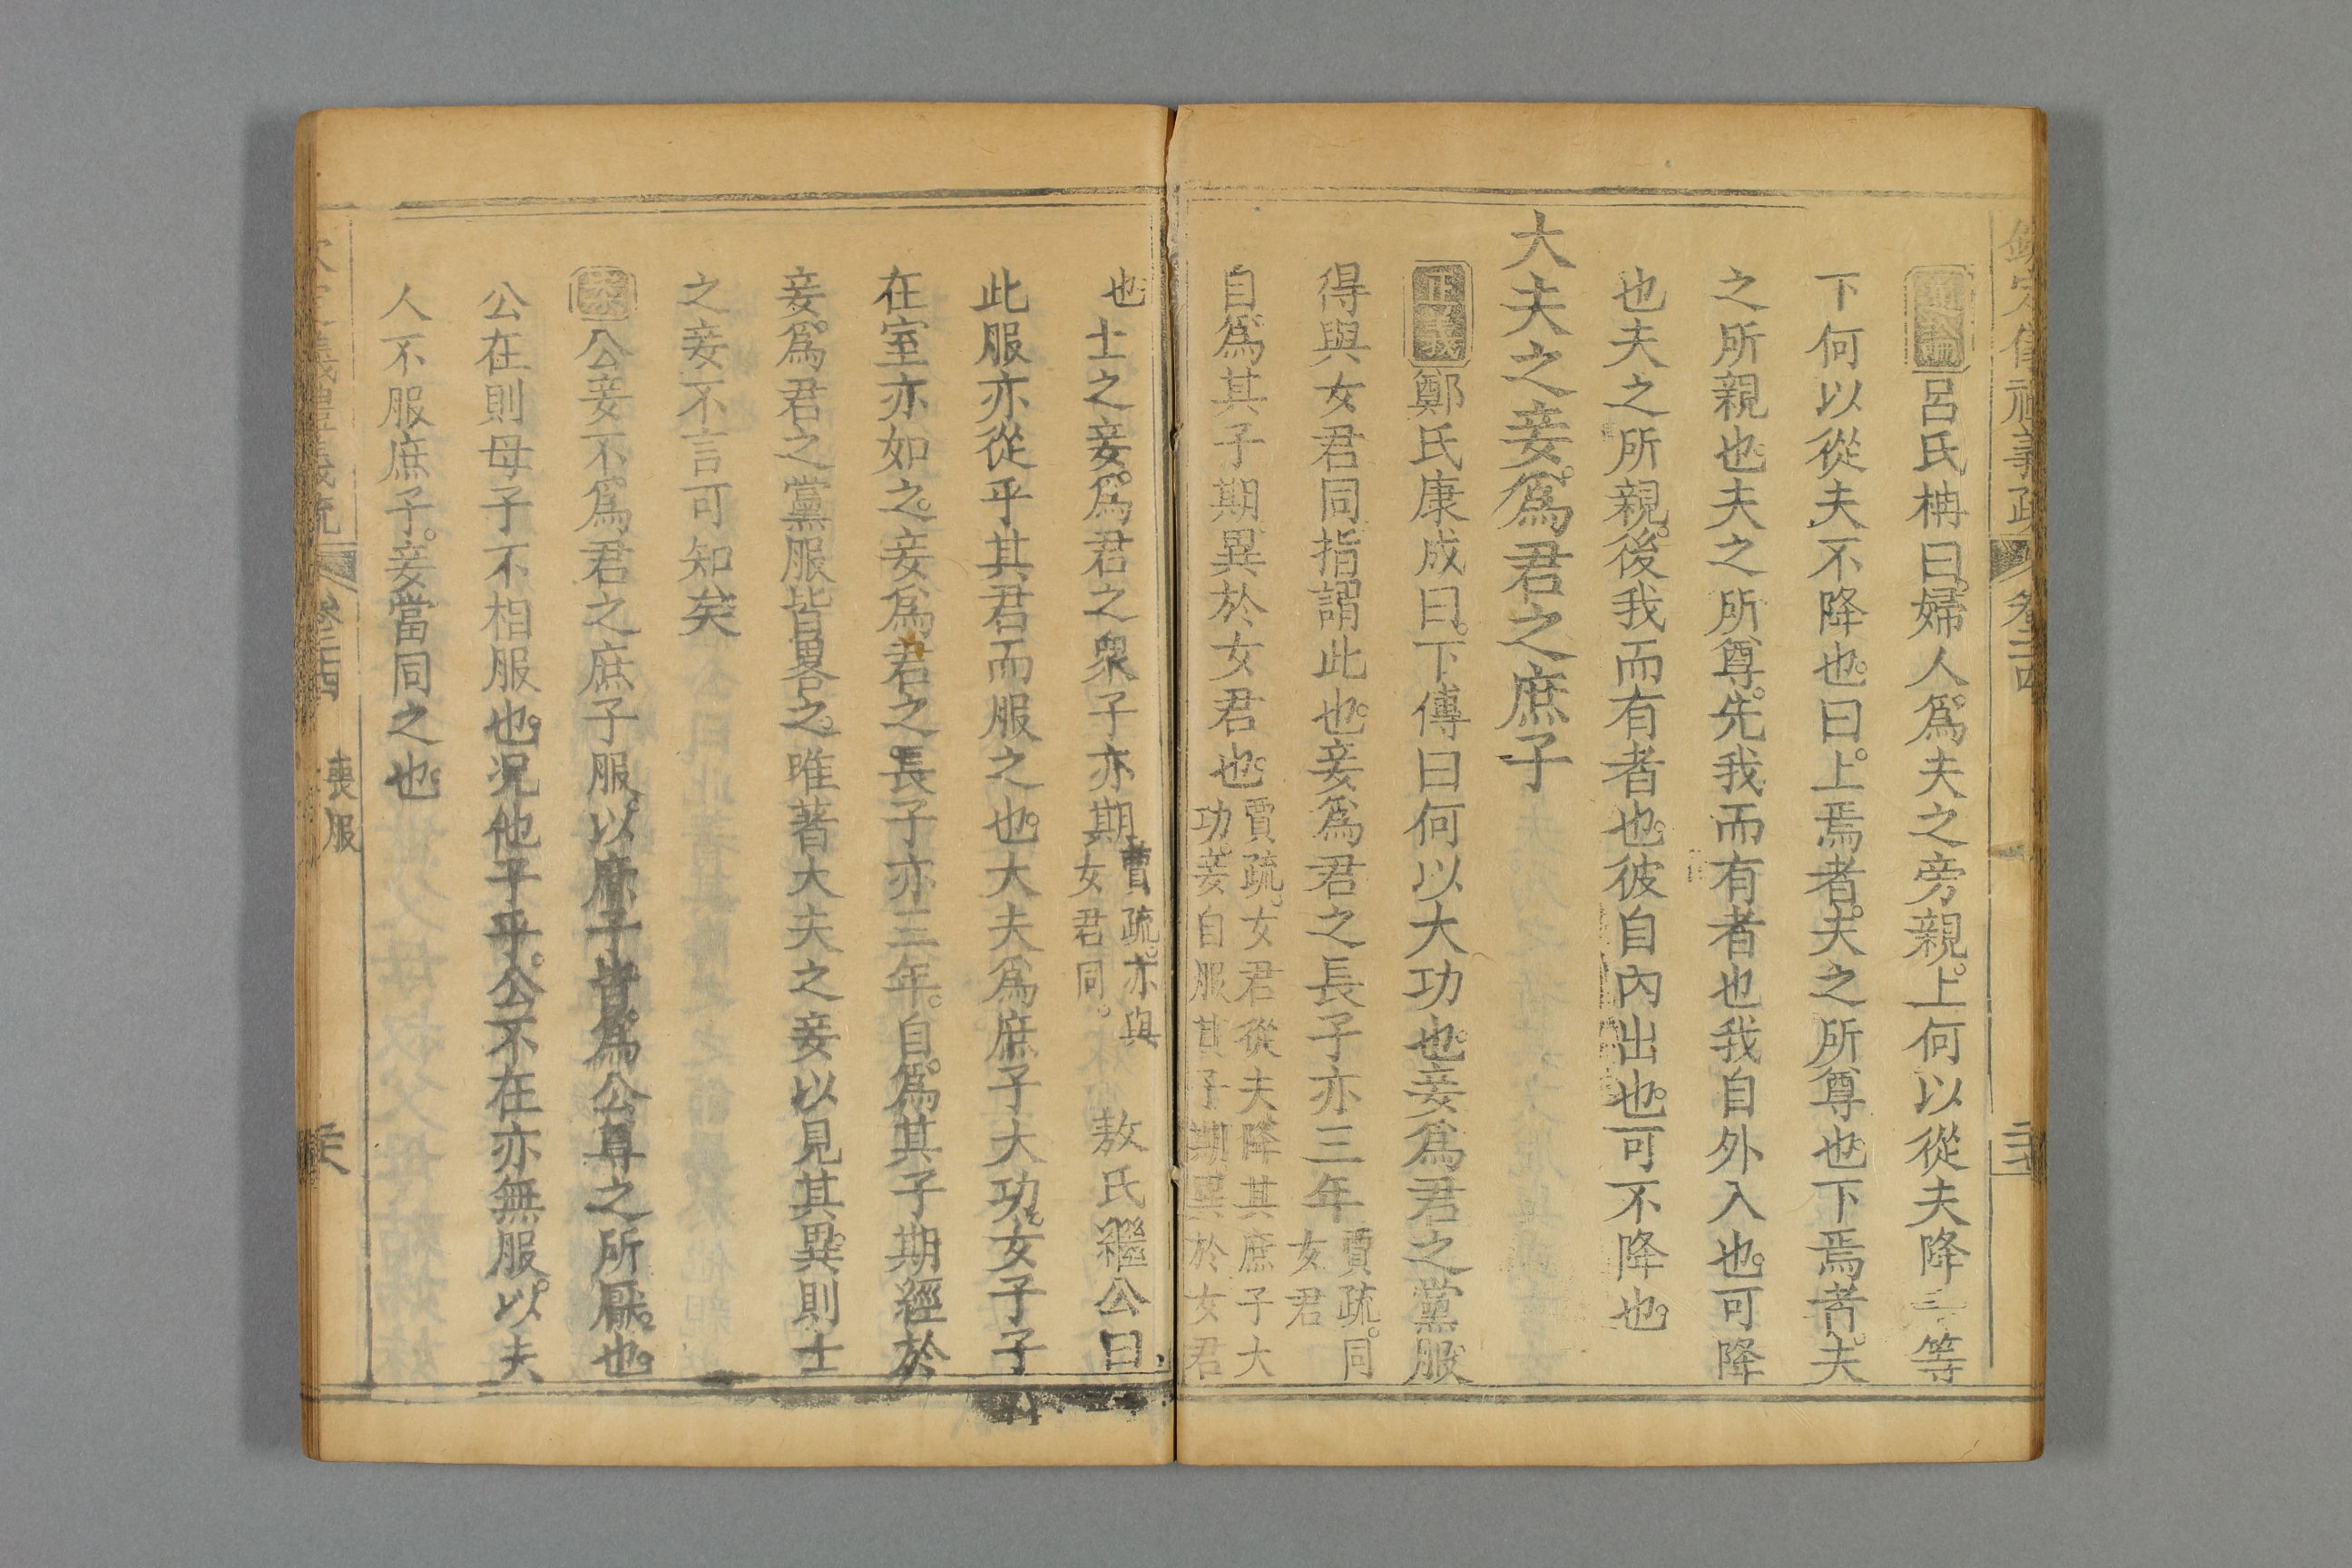 義疏
呂氏柟曰婦人爲夫之旁親上何以從夫降三等
下何以從夫不降也曰上焉者夫之所尊也下焉者夫
之所親也夫之所尊先我而有者也我自外入也可降
也夫之所親後我而有者也彼自內出也可不降也
大夫之妾爲君之庶子
正義鄭氏康成曰下傳曰何以大功也妾爲君之黨服
得與女君同指謂此也妾爲君之長子亦三年賈疏同女君
自爲其子期異於女君也賈疏女君從夫降其庶子大功妾自服其子期異於女君
也士之妾爲君之衆子亦期賈疏亦與女君同 敖氏繼公曰
此服亦從乎其君而服之也大夫爲庶子大功女子子
在室亦如之妾爲君之長子亦三年自爲其子期經於
妾爲君之黨服皆畧之唯著大夫之妾以見其異則士
之妾不言可知矣
公妾不爲君之庶子服以庶子皆爲公尊之所厭也
公在則母子不相服也况他子乎公不在亦無服以夫
人不服庶子妾當同之也
喪服